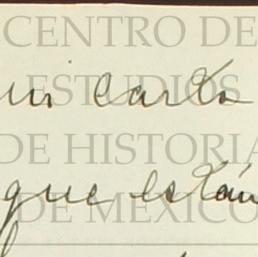 CENTRO DE
mi carta
ESTUDIOS
DE HISTORIA
que están
DE MÉXICO